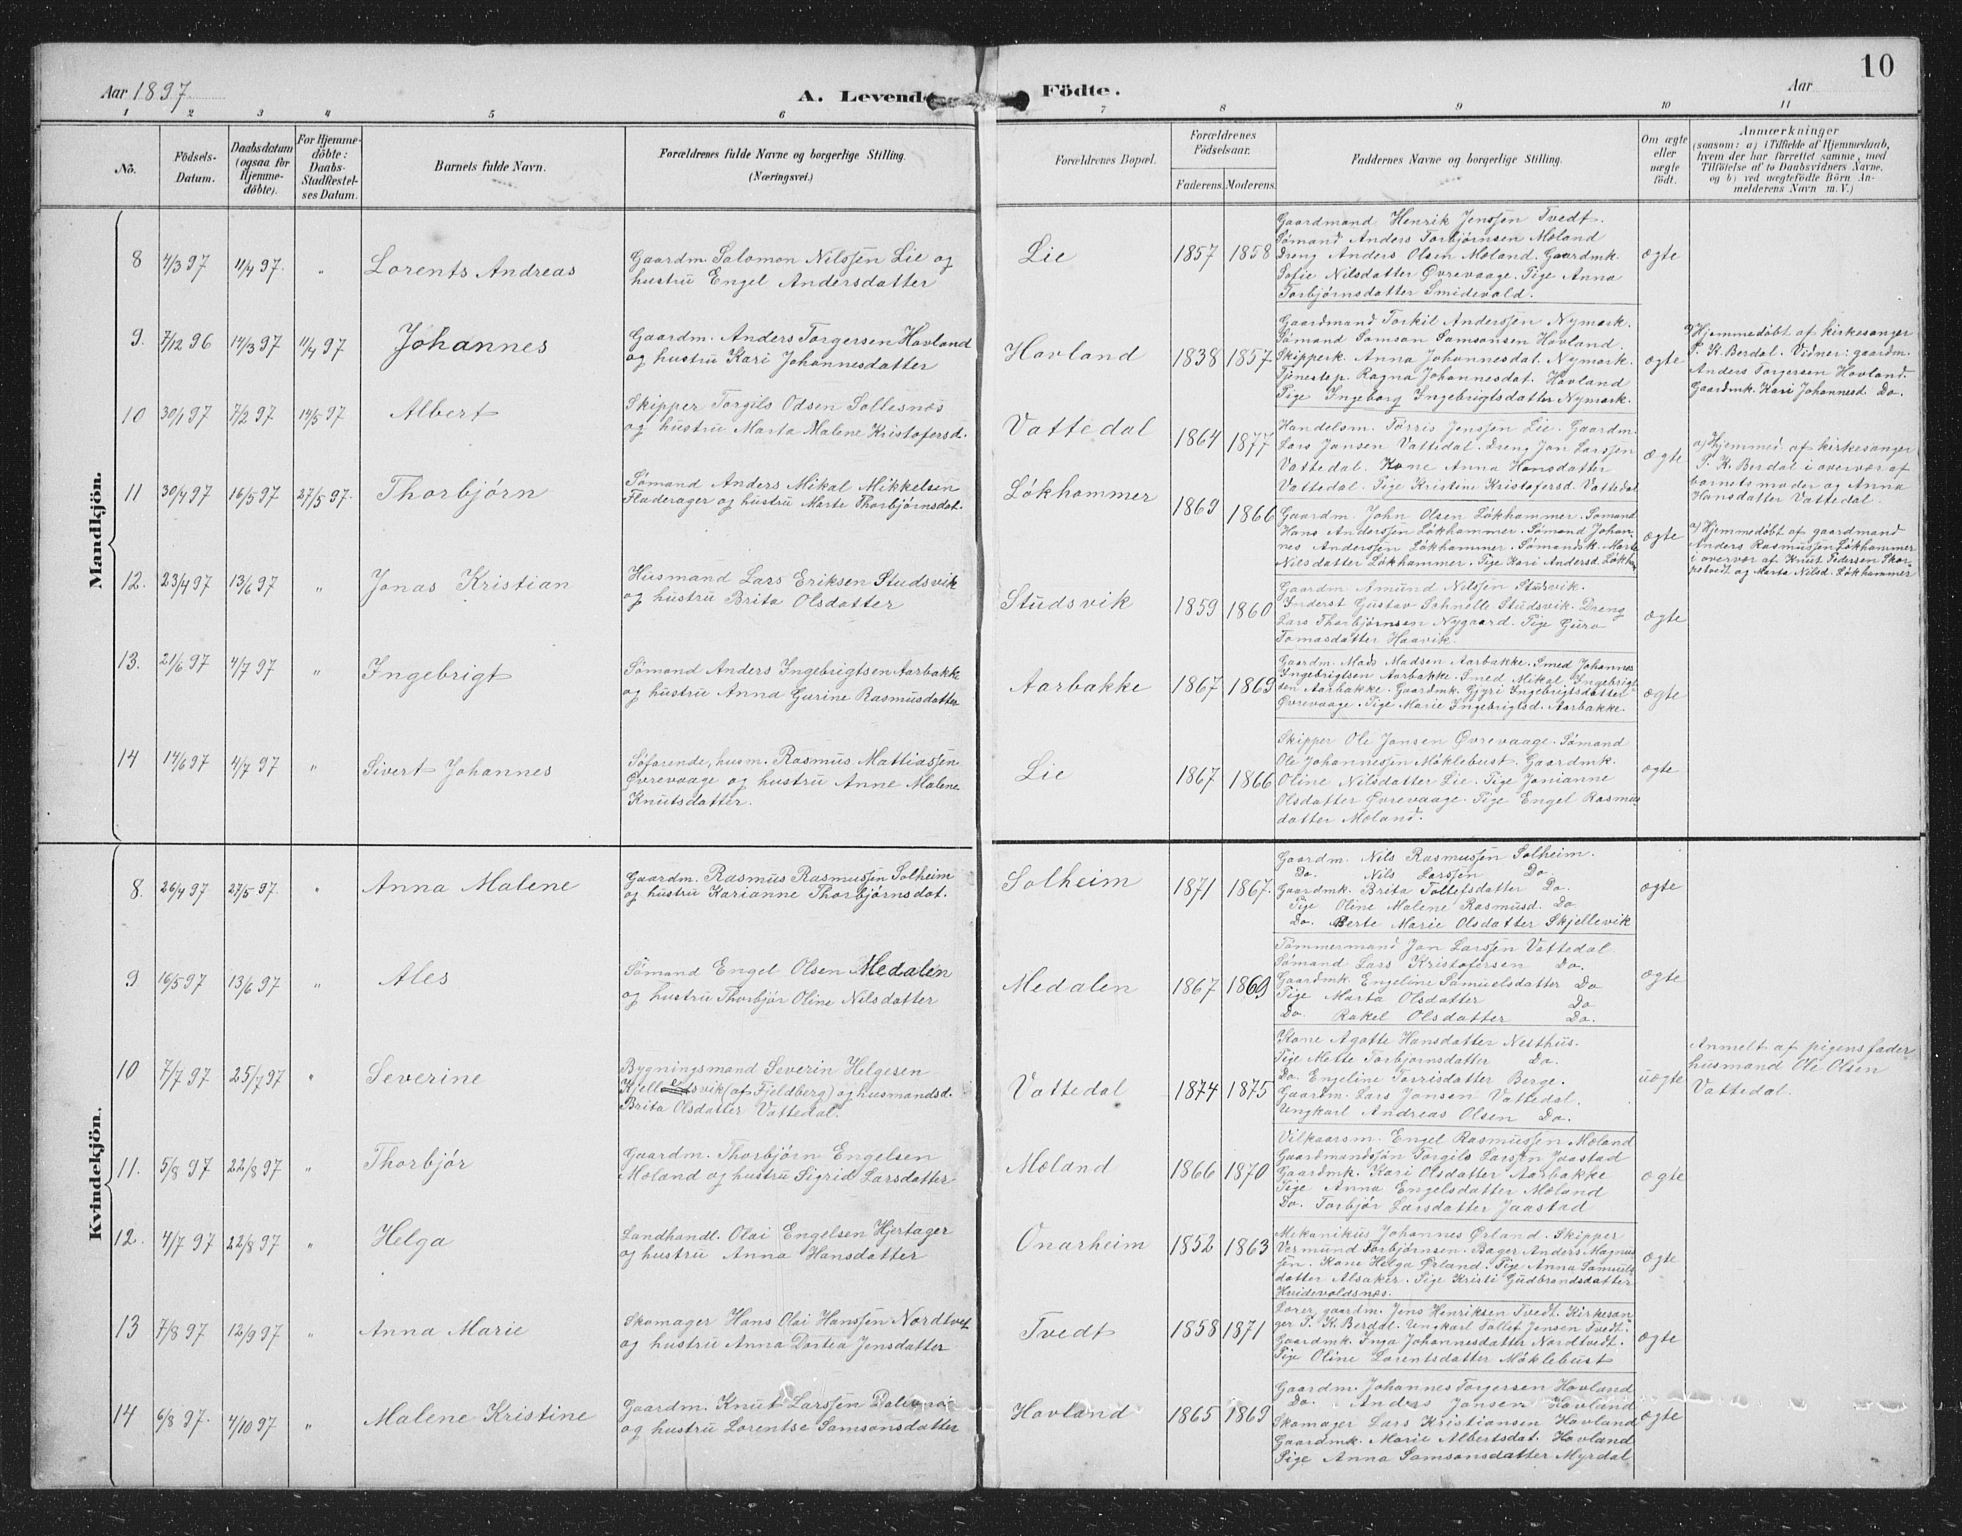 Aar 1897
A. Levende Födte.
Aar
10
1 2 3 4 5 6 7 8 9 10 11
No.
Födsels-Datum.
Daabsdatum (ogsaa for Hjemme-döbte).
For Hjemme-döbte: Daabs-Stadfæstel-ses Datum.
Barnets fulde Navn.
Forældrenes fulde Navne og borgerlige Stilling.
(Næringsvei.)
Forældrenes Bopæl.
Forældrenes Födselsaar.
Faderens. Moderens.
Faddernes Navne og borgerlige Stilling.
Om ægte eller uægte födt.
Anmærkninger
(saasom: a) i Tilfælde af Hjemmedaab, hvem der har forrettet samme, med Tilföielse af to Daabsvidners Navne, og b) ved uægtefödte Börn An-melderens Navn m. V.)
Mandkjön.
8 4/3 97 11/4 97. " Lorents Andreas
Gaardm. Salomon Nilssen Lie og
hustru Engel Andersdatter
Lie 1857 1858
Gaardmand Henrik Jenssen Tvedt.
Sømand Anders Torbjørnsen Mæland
Dreng Anders Olsen Mæland. Gaardmk.
Sofie Nilsdatter Øvrevaage. Pige Anna
Torbjørnsdatter Smidevold.
ægte
9. 7/12 96 14/3 97 11/4 97 Johannes
Gaardm. Anders Torgersen Hovland
og hustru Kari Johannesdatter
Hovland 1838 1857
Gaardmand Torkil Anderssen Nymark.
Sømand Samson Samsonsen Hovland.
Skipperk. Anna Johannesdat. Nymark.
Tjenestep. Ragna Johannesdat. Hovland
Pige Ingeborg Ingebrigtsdatter Nymark.
ægte
a) Hjemmedøbt af kirkesanger
P. K. Berdal. Vidner: gaardm.
Anders Torgersen Hovland.
Gaardmk. Kari Johannesd. Do.
10 30/1 97 7/2 97 14/5 97 Albert
Skipper Torgils Odsen Sollesnæs
og hustru Marta Malene Kristofersd.
Vattedal 1864 1877
Handelsm. Torris Jenssen Lie. Gaardm.
Lars Jansen Vattedal. Dreng Jon Larssen
Vattedal. Kone Anna Hansdatter
Vattedal. Pige Kristine Kristofersd. Vattedal
ægte
a) Hjemmed. af kirkesanger
P. K. Berdal i overvær af
barnets moder og Anna
Hansdatter Vattedal.
11 30/4 97 16/5 97 27/5 97. Thorbjørn
Sømand Anders Mikal Mikkelsen
Fladerager og hustru Marte Thorbjørnsdat.
Løkhammer 1869 1866
Gaardm. John Olsen Løkhammer. Sømand
Hans Anderssen Løkhammer. Sømand Johan-
nes Anderssen Løkhammer. Sømandsk. Marta
Nilsdatter Løkhammer. Pige Kari Andersd. Løkh.
ægte
a) Hjemmedøbt af gaardmand
Anders Rasmussen Løkhammer
i overvær af Knut Pedersen Skor-
petvedt og Marta Nilsd. Løkhammer
12. 23/4 97 13/6 97 " Jonas Kristian
Husmand Lars Eriksen Studsvik
og hustru Brita Olsdatter
Studsvik 1859 1860
Gaardm. Amund Nilssen Studsvik.
Inderst Gustav Schnelle Studsvik. Dreng
Lars Thorbjørnsen Nygaard. Pige Guro
Tomasdatter Haavik.
ægte
13. 21/6 97 4/7 97 " Ingebrigt
Sømand Anders Ingebrigtsen Aarbakke
og hustru Anna Gurine Rasmusdatter
Aarbakke 1867 1869
Gaardm. Mads Madsen Aarbakke. Smed Johannes
Ingebrigtsen Aarbakke. Smed Mikal Ingebrigt-
sen Aarbakke. Gaardmk. Gjyri Ingebrigtsdatter
Øvrevaage. Pige Marie Ingebrigtsd. Aarbakke.
ægte
14 14/6 97 4/7 97 " Sivert Johannes
Søfarende, husm. Rasmus Mattiassen
Øvrevaage og hustru Anne Malene
Knutsdatter.
Lie 1867 1866
Skipper Ole Jansen Øvrevaage. Sømand
Ole Johannessen Møklebust. Gaardmk.
Oline Nilsdatter Lie. Pige Jonianne
Olsdatter Øvrevaage. Pige Engel Rasmus
datter Mæland.
ægte
Kvindekjön.
8. 26/4 97 27/5 97. " Anna Malene
Gaardm. Rasmus Rasmussen Solheim
og hustru Karianne Thorbjørnsdat.
Solheim 1871 1867.
Gaardm. Nils Rasmussen Solheim.
Do. Nils Larssen Do.
Gaardmk. Brita Tollefsdatter Do.
Pige Oline Malene Rasmusd. Do
Do. Berte Marie Olsdatter Skjellevik
ægte
9 16/5 97 13/6 97 " Ales
Sømand Engel Olsen Medalen
og hustru Thorbjør Oline Nilsdatter
Medalen 1867 1869
Tømmermand Jon Larssen Vattedal
Sømand Lars Kristofersen Do.
Gaardmk. Engeline Samuelsdatter Do
Pige Marta Olsdatter Do
Do. Rakel Olsdatter Do.
ægte
10 7/7 97 25/7 97 " Severine
Bygningsmand Severin Helgesen
svik (af Fjeldberg) og husmandsd.
Brita Olsdatter Vattedal.
Vattedal 1874 1875
Kone Agatte Hansdatter Nesthus.
Pige Mette Torbjørnsdatter Do.
Do. Engeline Torrisdatter Berge.
Gaardm. Lars Jansen Vattedal.
Ungkarl Andreas Olsen Do.
uægte
Anmelt af pigens fader
husmand Ole Olsen
Vattedal.
11. 5/8 97 22/8 97 " Thorbjør
Gaardm. Thorbjørn Engelsen
Mæland og hustru Sigrid Larsdatter
Mæland 1866 1870
Vilkaarsm. Engel Rasmussen Mæland
Gaardmandssøn Torgils Larssen Jaastad
Gaardmk. Kari Olsdatter Aarbakke
Pige Anna Engelsdatter Mæland
Do. Torbjør Larsdatter Jaastad
ægte
12. 4/7 97 22/8 97 " Helga
Landhandl. Olai Engelsen Hjertager
og hustru Anna Hansdatter
Onarheim 1852 1863
Mekanikus Johannes Ørland. Skipper
Vermund Torbjørnsen. Bager Anders Magnus
sen. Kone Helga Ørland. Pige Anna Samuels-
datter Alsaker. Pige Kristi Gudbrandsdatter
Hvidevoldsnæs.
ægte
13 7/8 97 12/9 97 " Anna Marie
Skomager Hans Olai Hanssen Nordtvet
og hustru Anna Dortea Jensdatter
Tvedt 1858 1871
Lærer, gaardm. Jens Henriksen Tvedt. Kirkesan-
ger P. K. Berdal. Ungkarl Tollef Jensen Tvedt.
Gaardmk. Inga Johannesdatter Nordtvedt.
Pige Oline Lorentsdatter Møklebust
ægte
14 6/8 97. 4/10 97 " Malene Kristine
Gaardm. Knut Larssen
og hustru Lorentse Samsonsdatter
Hovland 1865 1869
Gaardm. Johannes Torgersen Hovland
Do. Anders Jansen Hovland
Skomager Lars Kristiansen Hovland
Gaardmk. Marie Albertsdat. Hovland
Pige Anna Samsonsdatter Myrdal
ægte